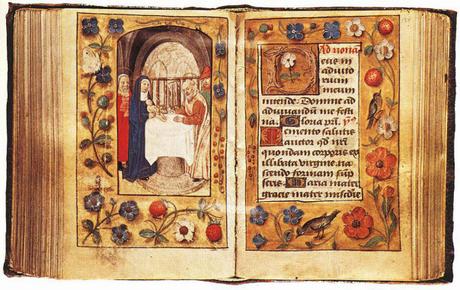 Ad nona
Deus in
adiuto
rium
meum
intende. Domine ad
adiuvandum me festi
na. Gloria pri.
Memento salutis
auctor qd nri
quondam corporis ex
illibata virgine na
scendo formam sump
seris Maria mater
gracie mater misdie